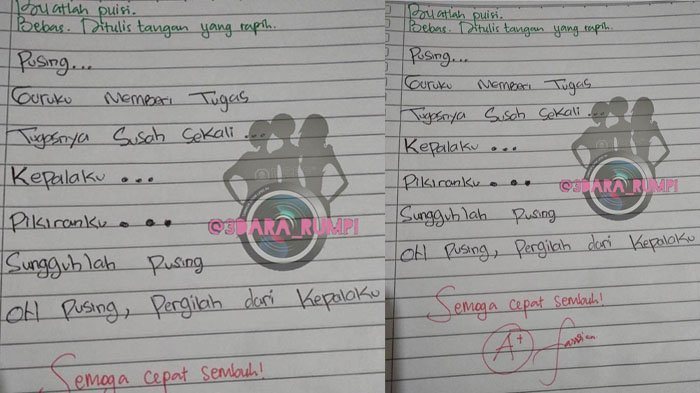 Buatlah puisi.
Bebas. Ditulis tangan yang rapih.
Pusing...
Guruku Memberi Tugas
Tugasnya Susah Sekali...
Kepalaku ...
Pikiranku ...
@3DARA_RUMPI
Sungguhlah Pusing
OH Pusing, Pergilah dari Kepalaku
Semoga cepat sembuh!
Buatlah puisi.
Bebas. Ditulis tangan yang rapih.
Pusing...
Guruku Memberi Tugas
Tugasnya Susah Sekali...
Kepalaku ...
Pikiranku ...
@3DARA_RUMPI
Sungguhlah Pusing
OH Pusing, Pergilah dari Kepalaku
Semoga cepat sembuh!
A+